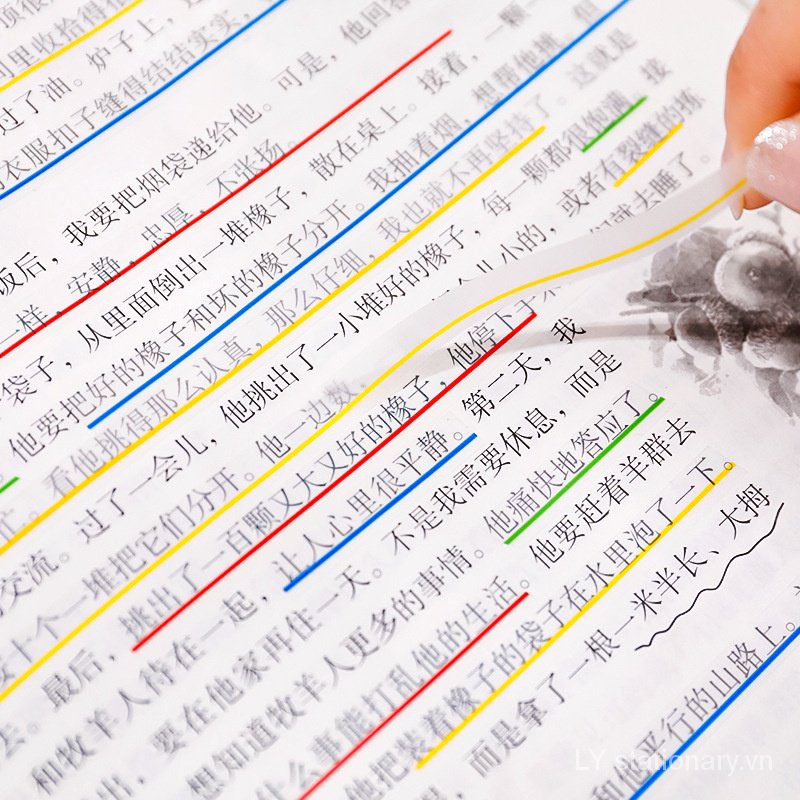 里收拾得很
过了油。炉子上,
衣服扣子缝得结结实实,
饭后,我要把烟袋递给他。可是,他回答
一样,安静,忠厚,不张扬。
袋子,从里面倒出一堆橡子,散在桌上。接着,一颗一颗
他要把好的橡子和坏的橡子分开。我抽着烟,想帮他挑,但
看他挑得那么认真,那么仔细,我也就不再坚持了。这就是
交流。过了一会儿,他挑出了一小堆好的橡子,每一颗都很饱满。接
十个一堆把它们分开。他一边数,个儿小的,或者有裂缝的拣
最后,挑出了一百颗又大又好的橡子,他停下手来们就去睡了。
和牧羊人待在一起,让人心里很平静。第二天,我
出,要在他家再住一天。不是我需要休息,而是
想知道牧羊人更多的事情。他痛快地答应了。
什么事能打乱他的生活。他要赶着羊群去
他把装着橡子的袋子在水里泡了一下。
而是拿了一根一米半长、大拇
和他平行的山路上。
LY stationary.vn